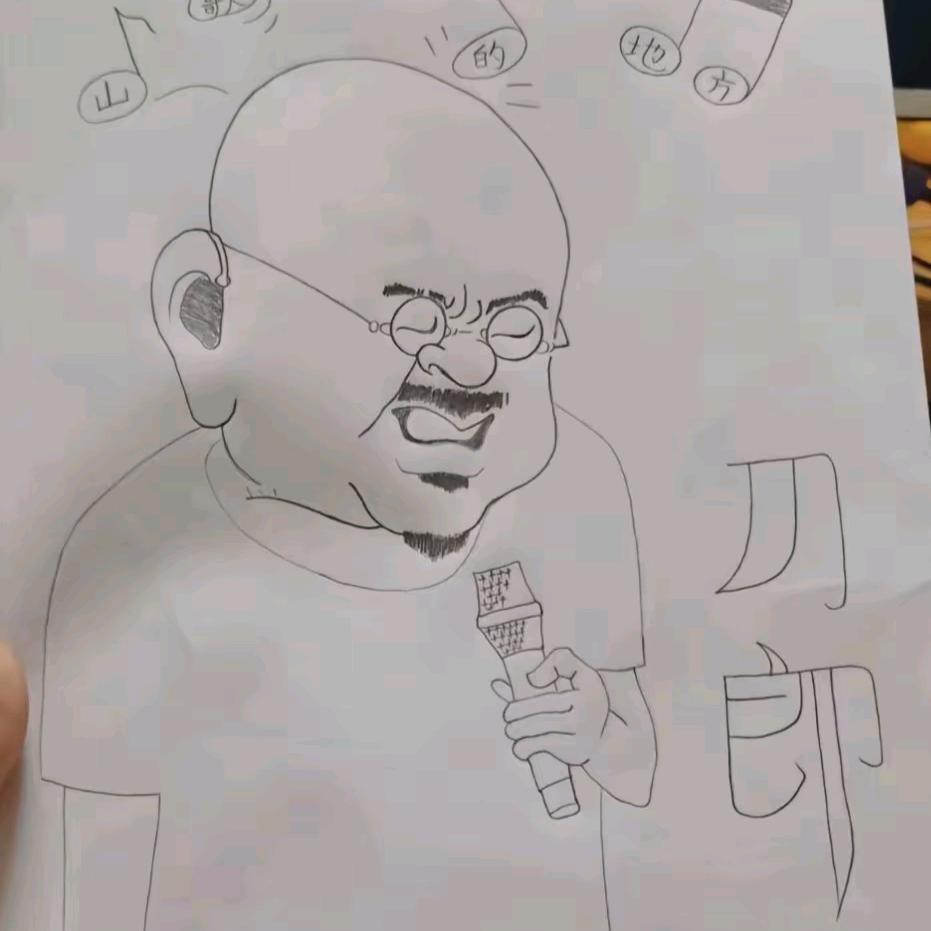 山歌的地方
刀郎